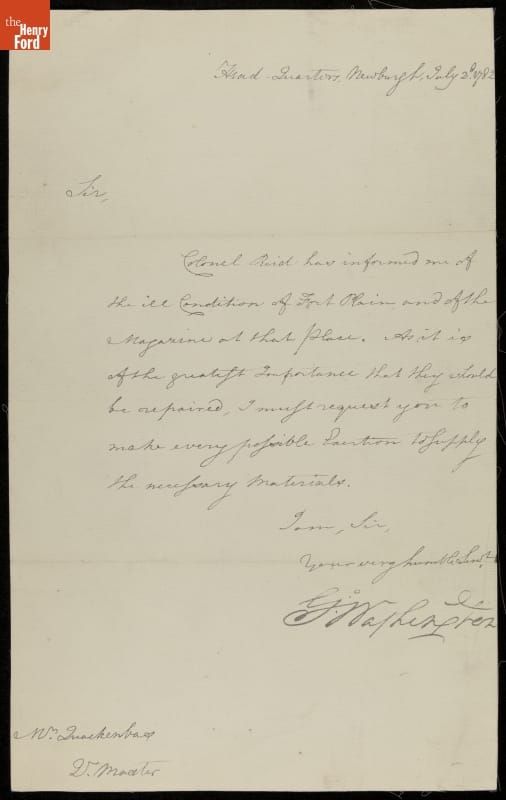 the
Henry
Ford
Head-Quarters, Newburgh, July 2d. 1782
Sir,
Colonel Reid has informed me of
the ill Condition of Fort Plain and of the
Magazine at that Place. As it is
of the greatest Importance that they should
be repaired, I must request you to
make every possible Exertion to supply
the necessary Materials.
I am, Sir,
Your very humble Servt.
Go: Washington
Mr. Quackenbos
Qr. Master